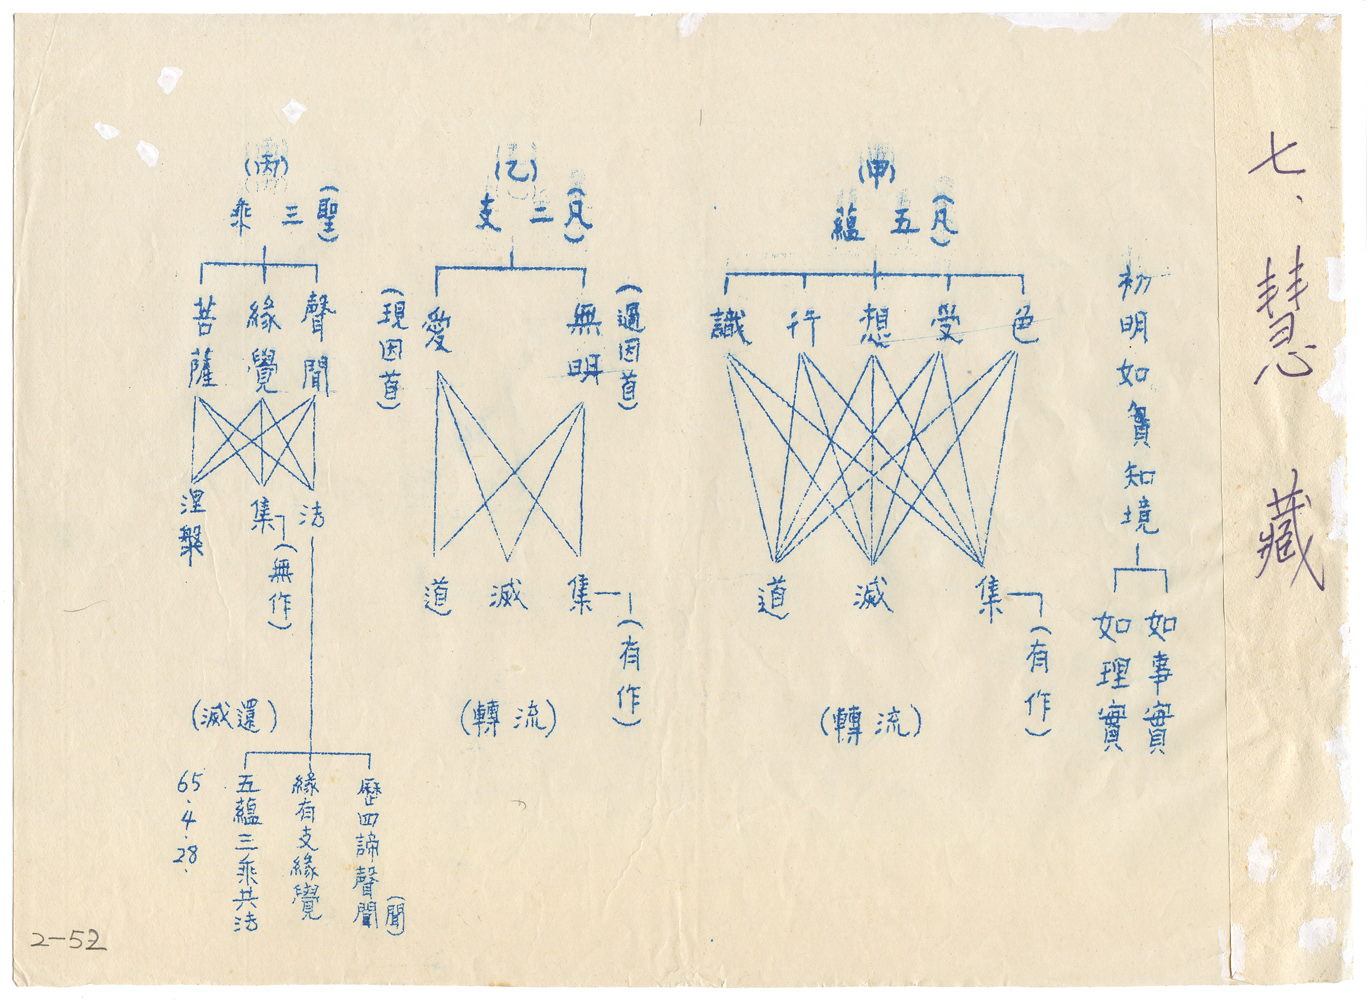 七、慧藏
初明如實知境
如事實
如理實
(甲)
(凡)
五蘊
色
受
想
行
識
集
(有作)
滅
道
(流轉)
(乙)
(凡)
二支
(過因首)
無明
愛
(現因首)
集
(有作)
滅
道
(流轉)
(丙)
(聖)
三乘
聲聞
緣覺
菩薩
法
集
(無作)
涅槃
(還滅)
歷四諦聲聞
(聞)
緣有支緣覺
五蘊三乘共法
65.4.28.
2-52